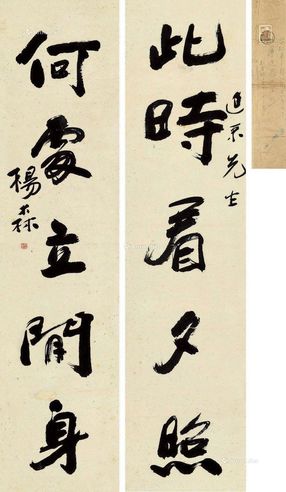 此時看夕照
先生
何處立閒身
楊森